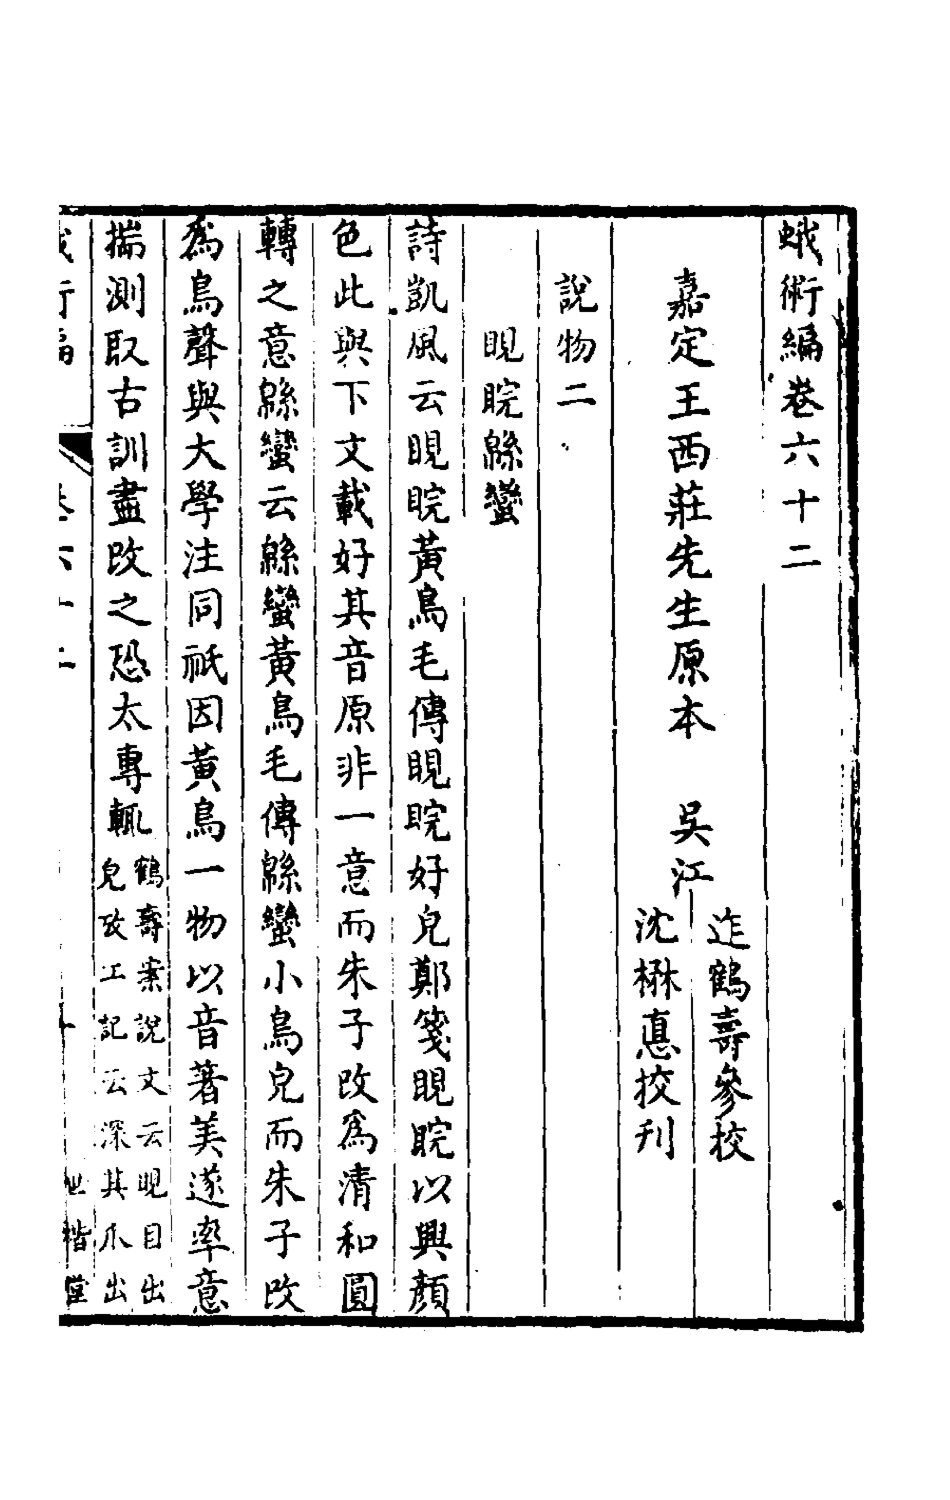 蛾術編卷六十二
嘉定王西莊先生原本　吳江
迮鶴壽參校
沈楙悳挍刊
說物二
睍睆緜蠻
詩凱風云睍睆黃鳥毛傳睍睆好皃鄭箋睍睆以興顏
色此與下文載好其音原非一意而朱子改爲清和圓
轉之意緜蠻云緜蠻黃鳥毛傳緜蠻小鳥皃而朱子改
爲鳥聲與大學注同祇因黃鳥一物以音著美遂率意
揣測取古訓盡改之恐太專輒
鶴壽案說文云睍目出
皃攷工記云深其爪出
蛾術編
卷六十二
世楷堂